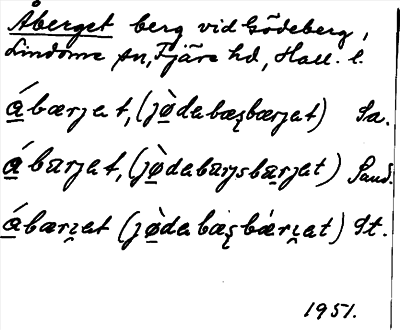 Åberget berg vid Gödeberg,
Lindome sn, Fjäre hd, Hall. l.
á̱bærjet, (jø̱̀debæʂbærjet) Sa.
á̱bærjet, (jø̱̀debærjsbærjet) Sand.
á̱bæri̯et (jø̱̀debæʂbæ̀ri̯et) St.
1951.